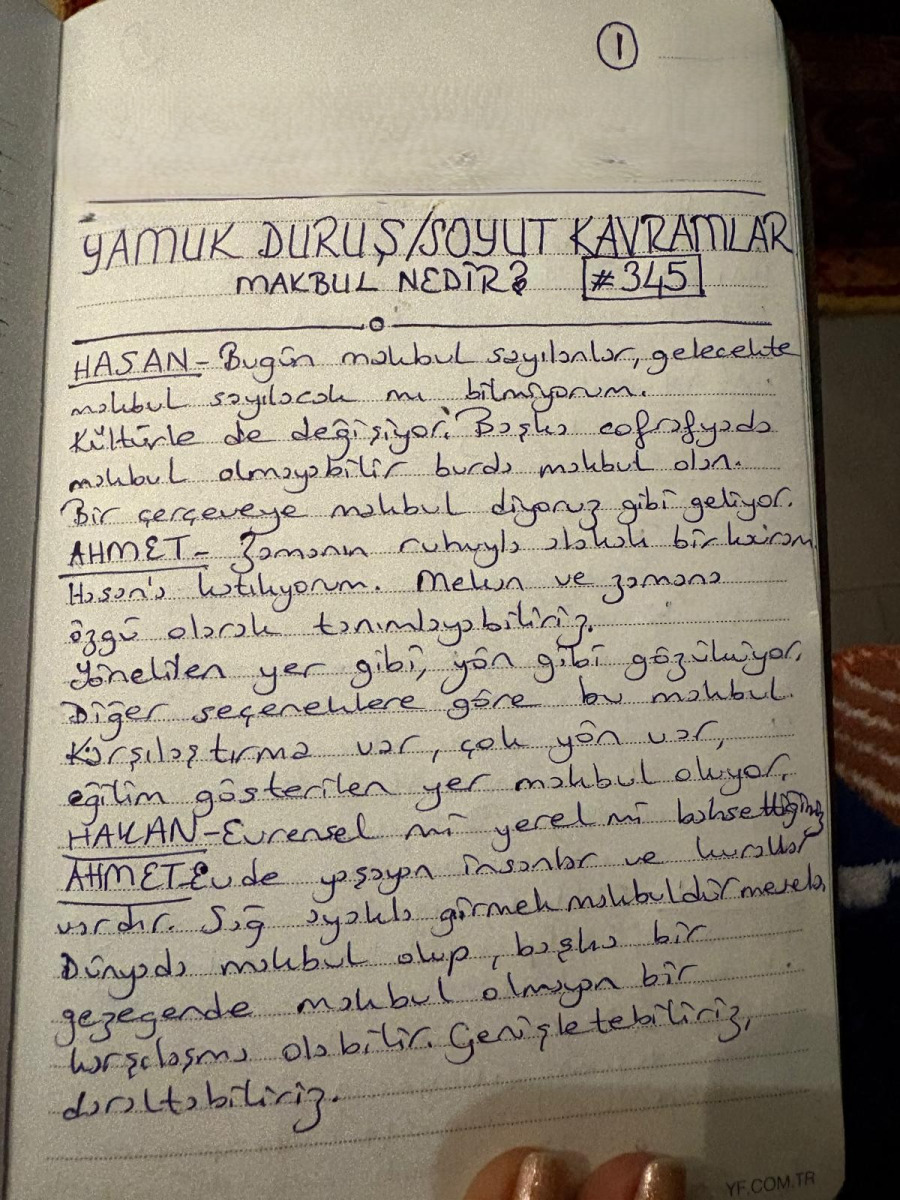 1
YAMUK DURUŞ/SOYUT KAVRAMLAR
MAKBUL NEDİR? #345
HASAN- Bugün makbul sayılanlar, gelecekte
makbul sayılacak mı bilmiyorum.
Kültürle de değişiyor. Başka coğrafyada
makbul olmayabilir burda makbul olan.
Bir çerçeveye makbul diyoruz gibi geliyor.
AHMET- Zamanın ruhuyla alakalı bir kavram.
Hasan'a katılıyorum. Mekan ve zamana
özgü olarak tanımlayabiliriz.
Yönelilen yer gibi, yön gibi gözüküyor.
Diğer seçeneklere göre bu makbul.
Karşılaştırma var, çok yön var,
eğilim gösterilen yer makbul oluyor.
HAKAN-Evrensel mi yerel mi bahsettiğiniz
AHMET-Evde yaşayan insanlar ve kurallar
vardır. Sağ ayakla girmek makbuldür mesela,
Dünyada makbul olup, başka bir
gezegende makbul olmayan bir
karşılaşma olabilir. Genişletebiliriz,
daraltabiliriz.
YF.COM.TR